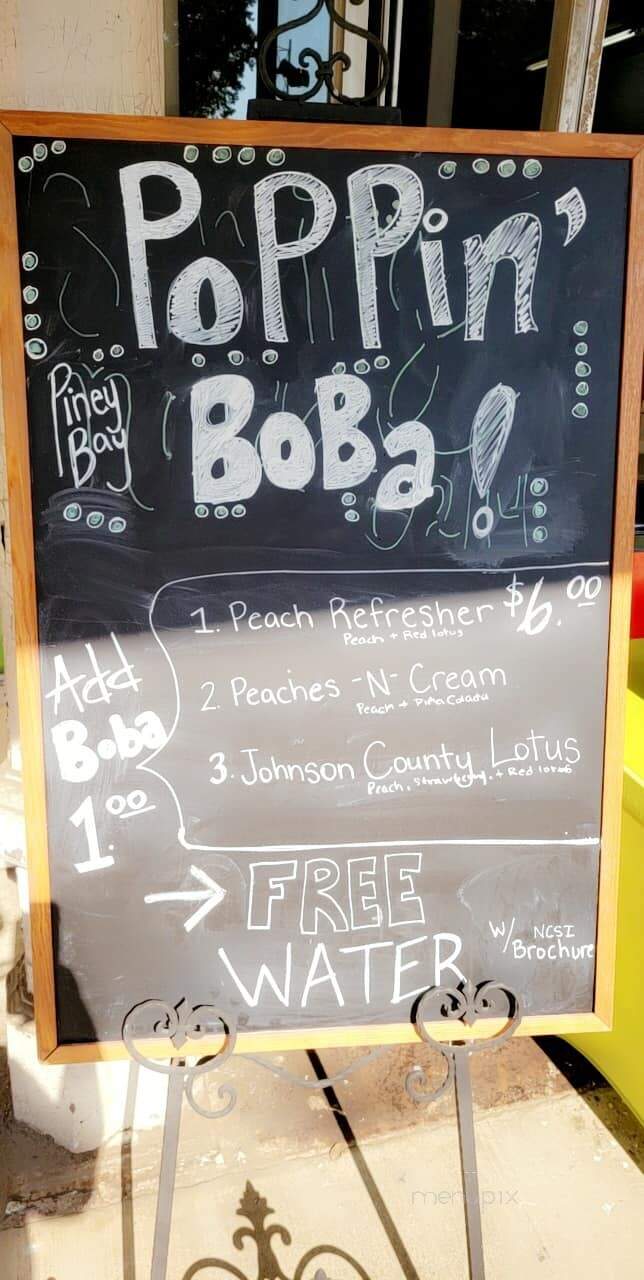 PoPPin'
Piney
Bay
BoBa!
1. Peach Refresher $6.00
Peach + Red lotus
2. Peaches -N- Cream
Peach + Piña Colada
3. Johnson County Lotus
Peach, Strawberry, + Red lotus
Add
Boba
1.00
→ FREE
WATER
W/ NCSI
Brochure
menupix